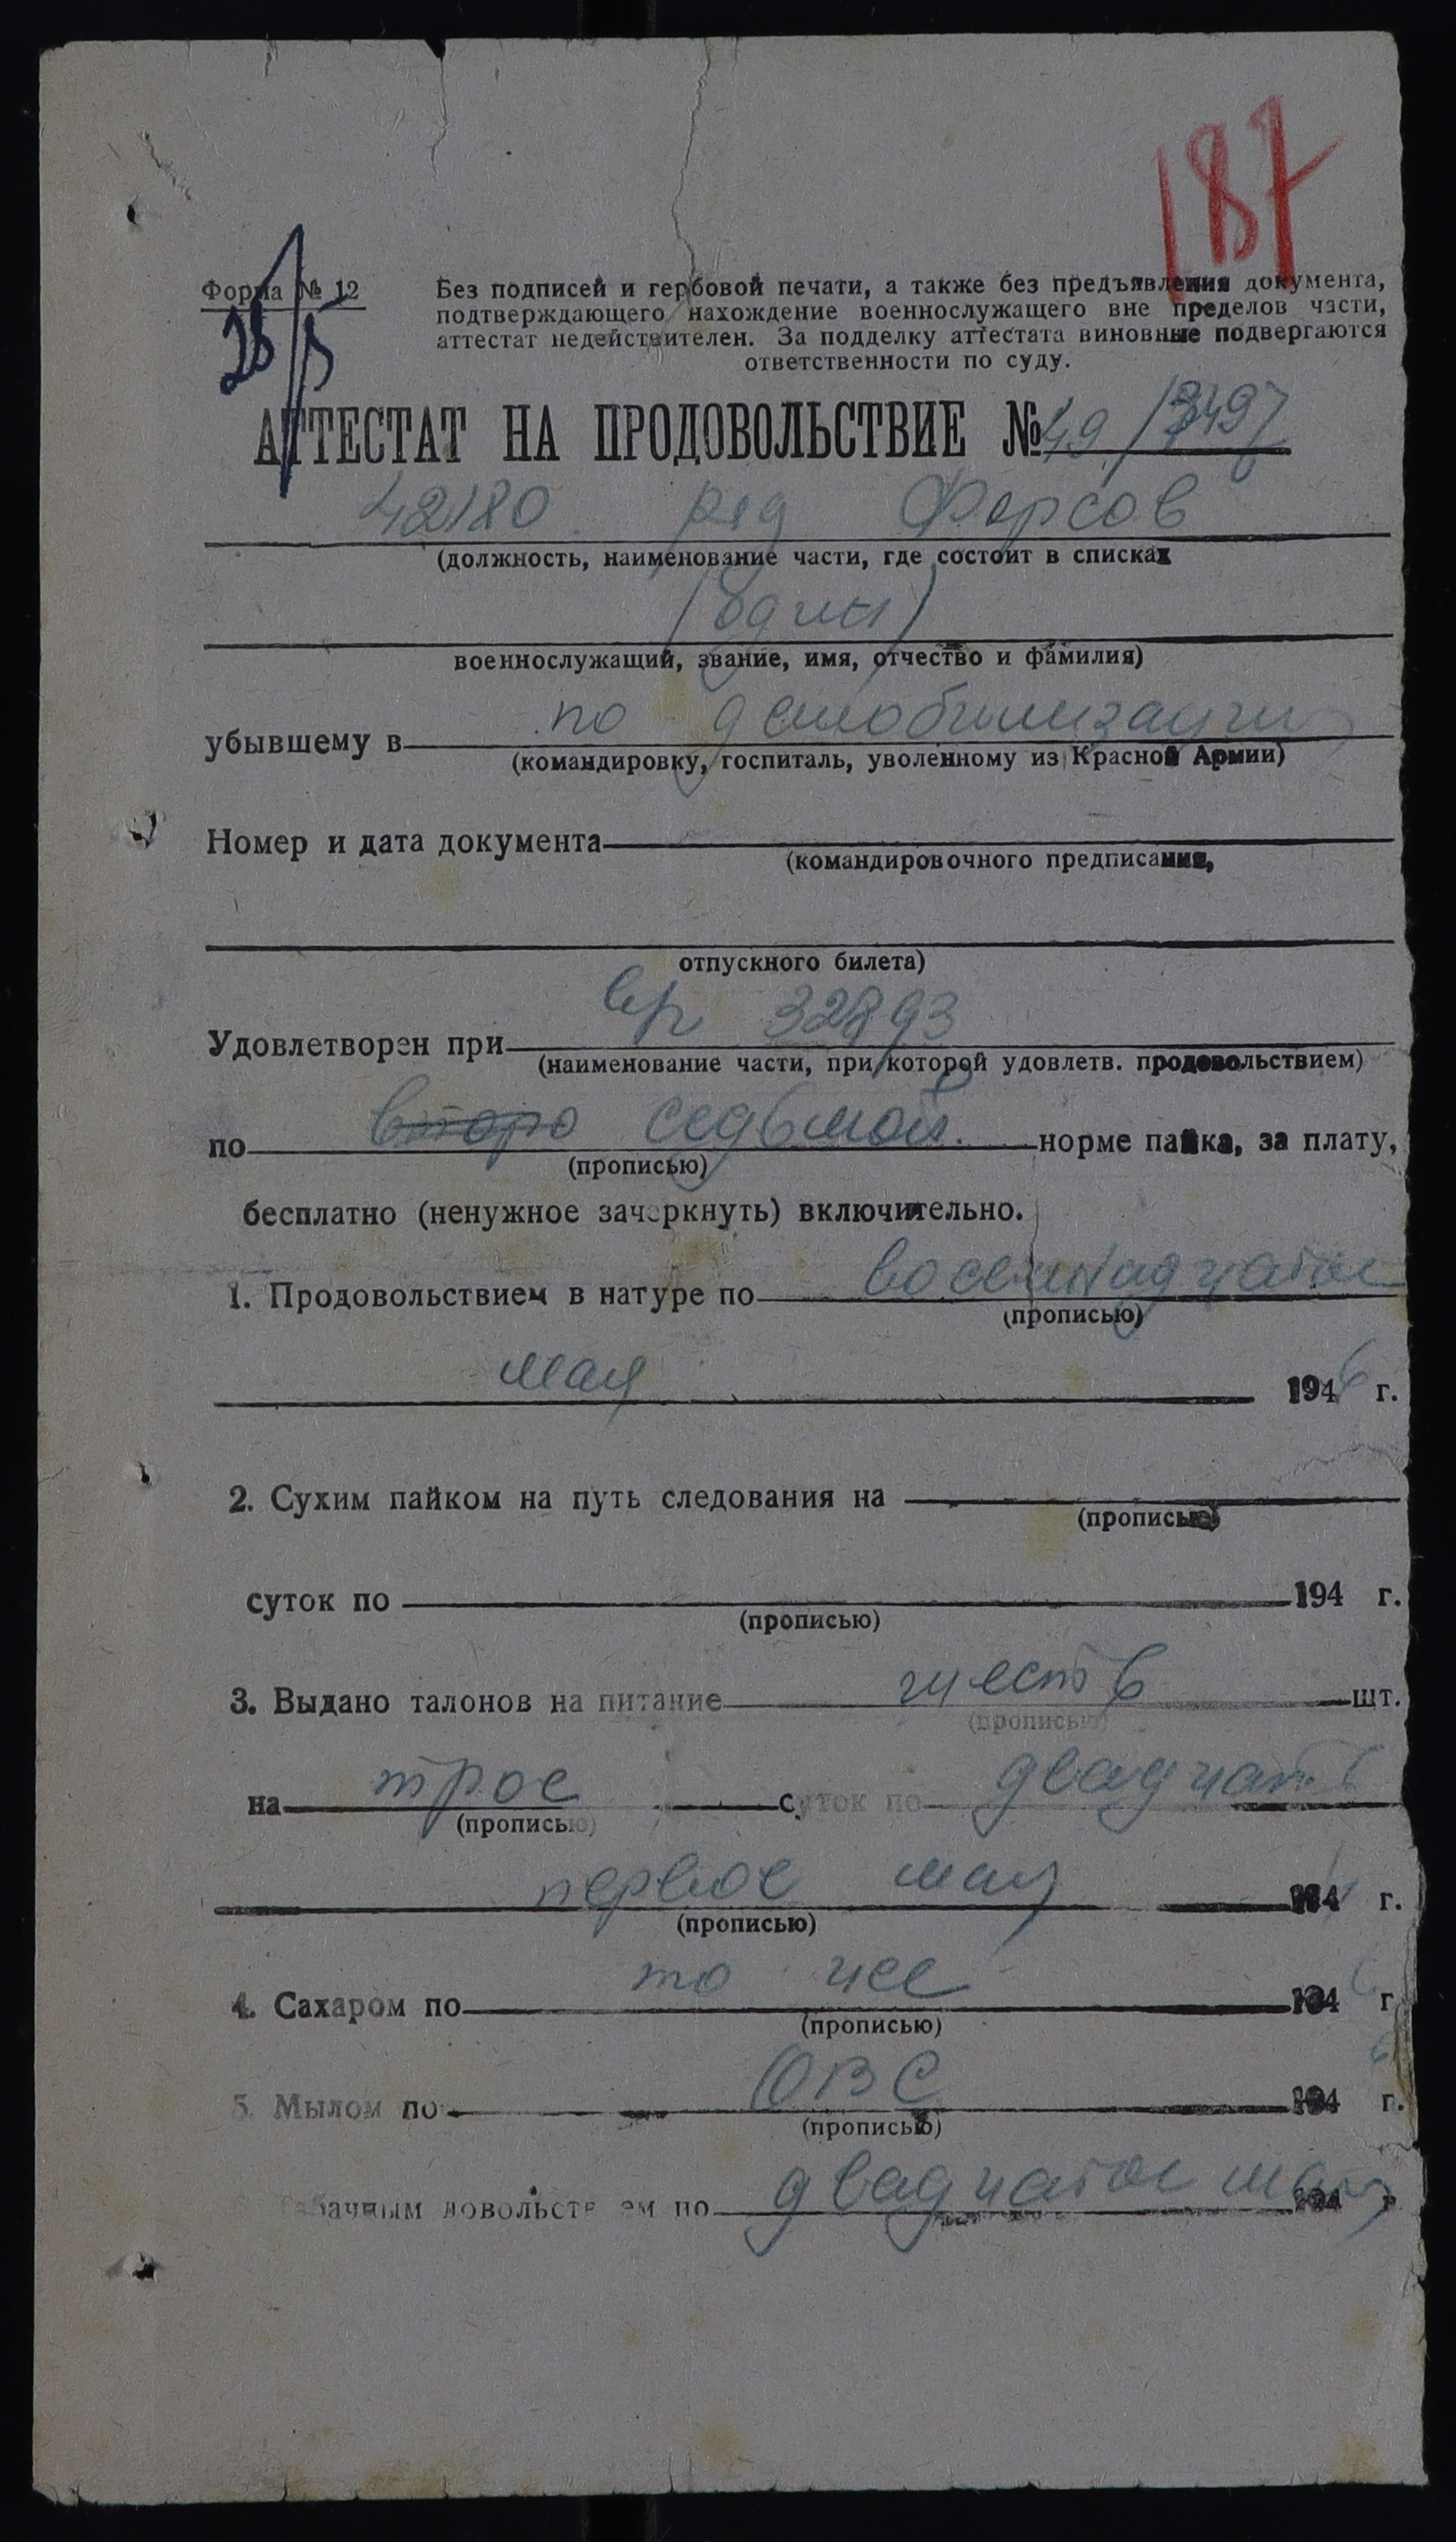 187
Форма № 12
28/5
Без подписей и гербовой печати, а также без предъявления документа,
подтверждающего нахождение военнослужащего вне пределов части,
аттестат недействителен. За подделку аттестата виновные подвергаются
ответственности по суду.
АТТЕСТАТ НА ПРОДОВОЛЬСТВИЕ № 49/3497
42180 ряд Фарсов
(должность, наименование части, где состоит в списках
(один)
военнослужащий, звание, имя, отчество и фамилия)
убывшему в по демобилизации
(командировку, госпиталь, уволенному из Красной Армии)
Номер и дата документа
(командировочного предписания,
отпускного билета)
Удовлетворен при 32893
(наименование части, при которой удовлетв. продовольствием)
по второ седьмой норме пайка, за плату,
(прописью)
бесплатно (ненужное зачеркнуть) включительно.
1. Продовольствием в натуре по восемнадцатое
(прописью)
мая 1946 г.
2. Сухим пайком на путь следования на
(прописью)
суток по 194 г.
(прописью)
3. Выдано талонов на питание шесть шт.
(прописью)
на трое суток по двадцать
(прописью)
первое мая 194 г.
(прописью)
4. Сахаром по то же 1946 г.
(прописью)
5. Мылом по ОВС 1946 г.
(прописью)
Табачным довольствием по двадцатое мая 194 г.